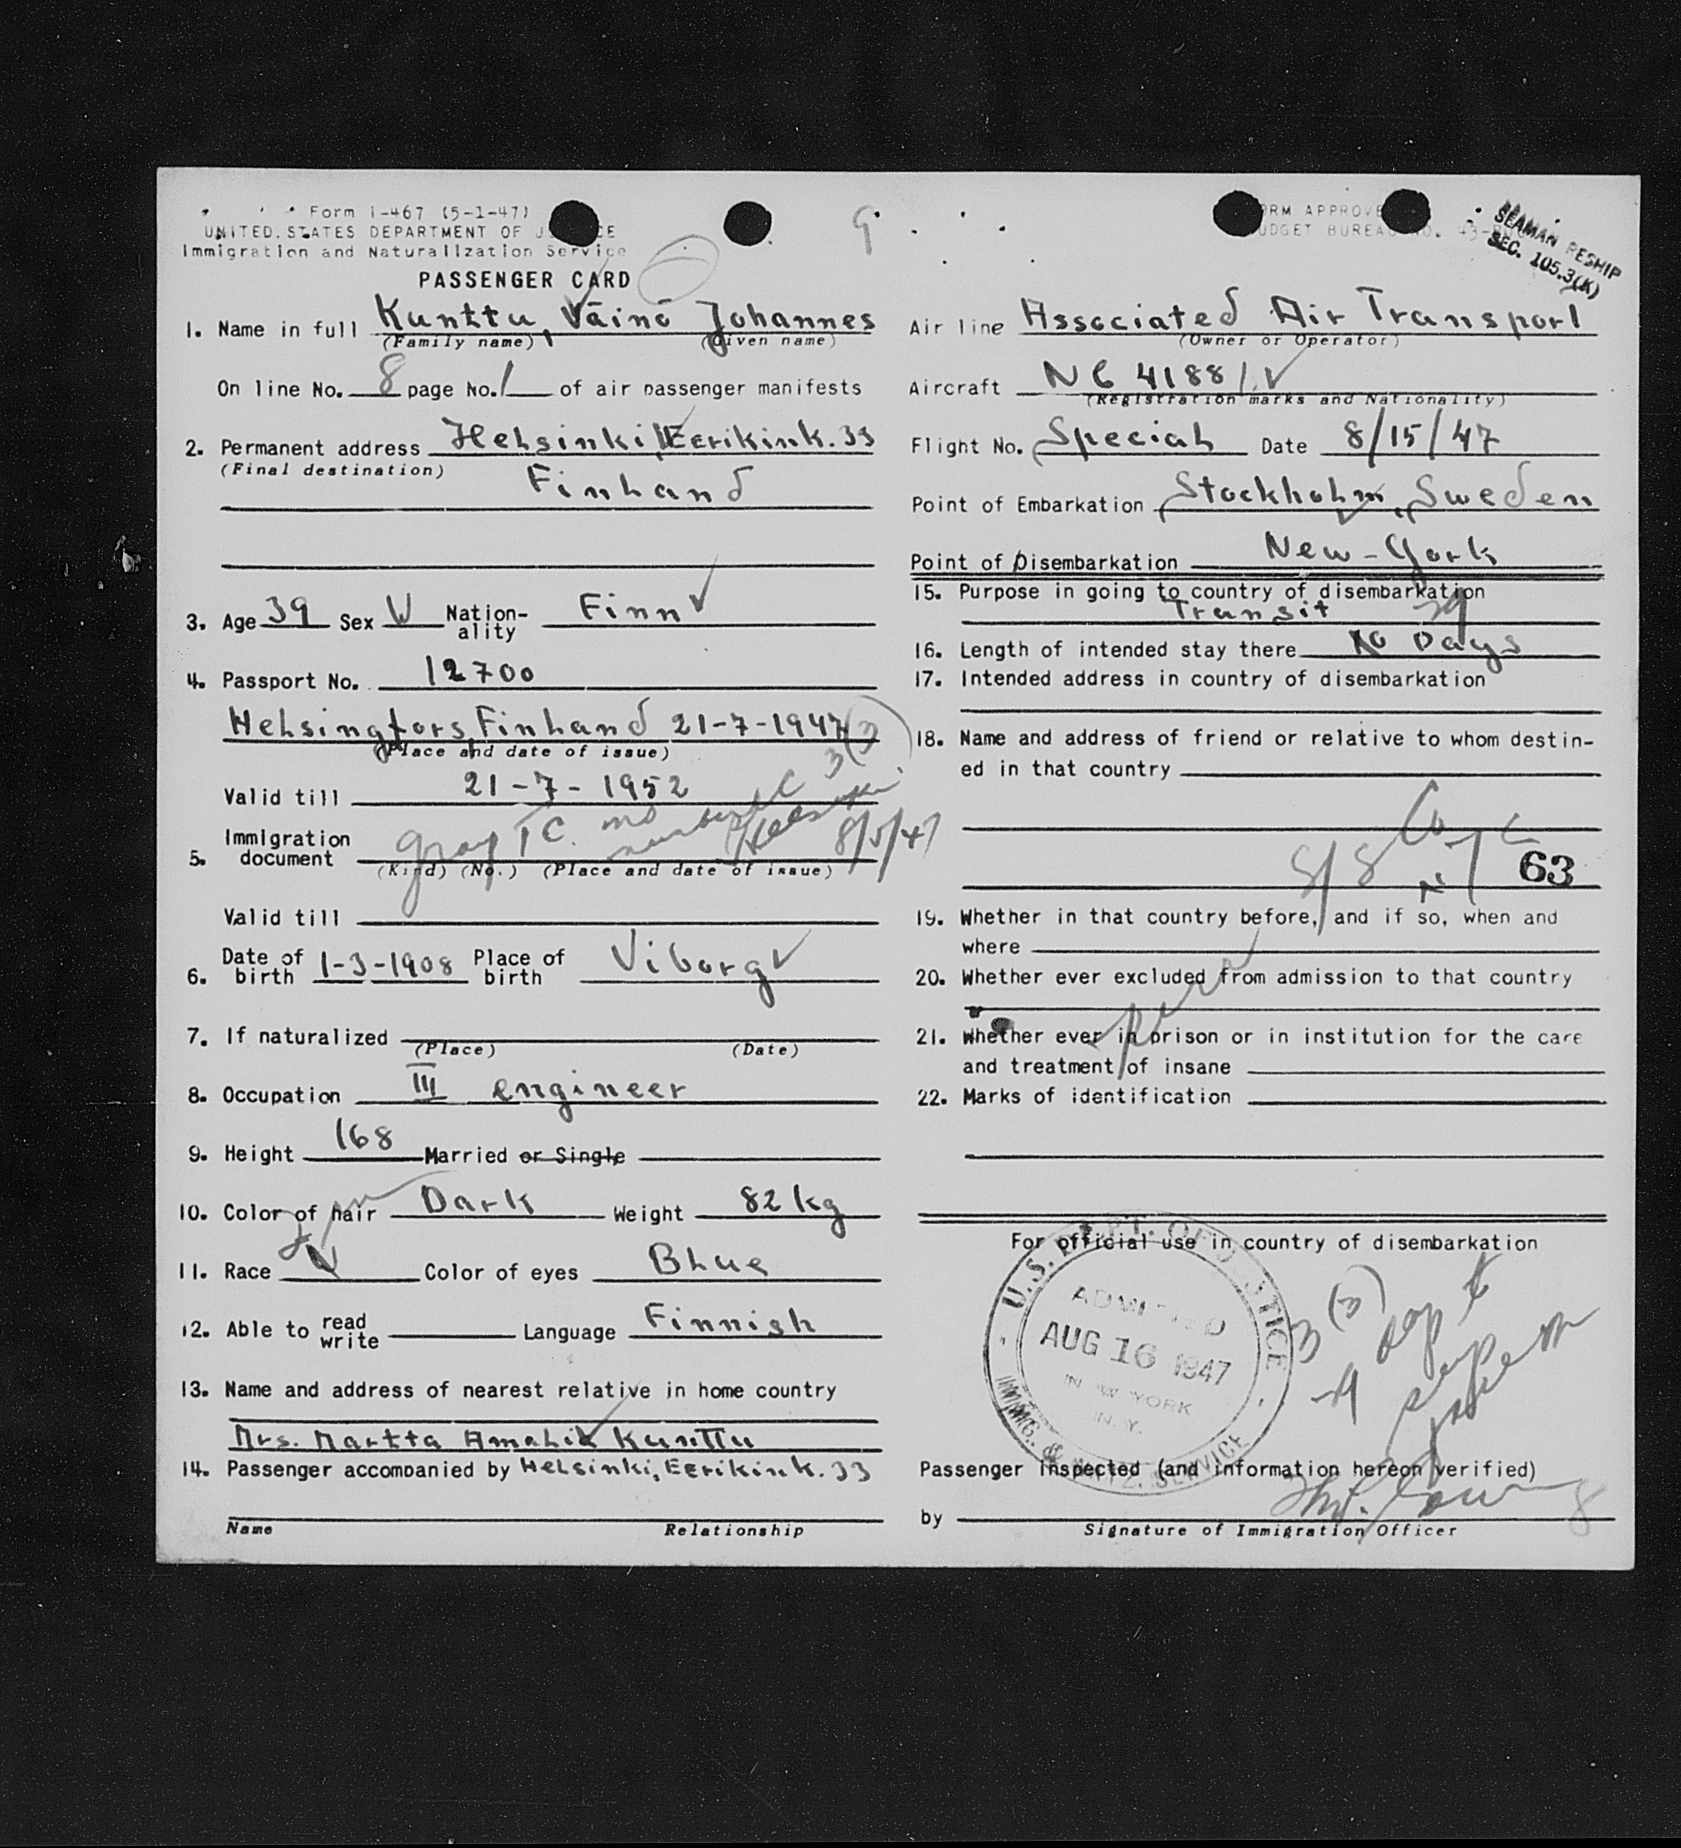 Form I-467 (5-1-47)
UNITED STATES DEPARTMENT OF
Immigration and Naturalization Service
PASSENGER CARD
SEAMAN RESHIP
SEC. 105.3(K)
1. Name in full Kunttu, Väinö Johannes
(Family name) (Given name)
On line No. 8 page No. 1 of air passenger manifests
2. Permanent address Helsinki, Eerikink. 33
(Final destination) Finland
3. Age 39 Sex Nation-ality Finn
4. Passport No. 12700
Helsingfors, Finland 21-7-1947
(Place and date of issue)
Valid till 21-7-1952
5. Immigration document 8/5/47
(Kind) (No.) (Place and date of issue)
Valid till
6. Date of birth 1-3-1908 Place of birth Viborg
7. If naturalized
(Place) (Date)
8. Occupation III engineer
9. Height 168 Married or Single
10. Color of hair Dark Weight 82 kg
11. Race Color of eyes Blue
12. Able to read write Language Finnish
13. Name and address of nearest relative in home country
Mrs. Martta Amalia Kunttu
14. Passenger accompanied by Helsinki, Eerikink. 33
Name Relationship
FORM APPROVED
BUDGET BUREAU NO.
Air line Associated Air Transport
(Owner or Operator)
Aircraft NC 41881
(Registration marks and Nationality)
Flight No. Special Date 8/15/47
Point of Embarkation Stockholm, Sweden
Point of Disembarkation New-York
15. Purpose in going to country of disembarkation
Transit 29
16. Length of intended stay there Days
17. Intended address in country of disembarkation
18. Name and address of friend or relative to whom destin-
ed in that country
63
19. Whether in that country before, and if so, when and
where
20. Whether ever excluded from admission to that country
21. Whether ever in prison or in institution for the care
and treatment of insane
22. Marks of identification
For official use in country of disembarkation
U.S. DEPT. OF JUSTICE
ADMITTED
AUG 16 1947
IN NEW YORK
N.Y.
IMMIG. & NATZ. SERVICE
Passenger inspected (and information hereon verified)
by
Signature of Immigration Officer